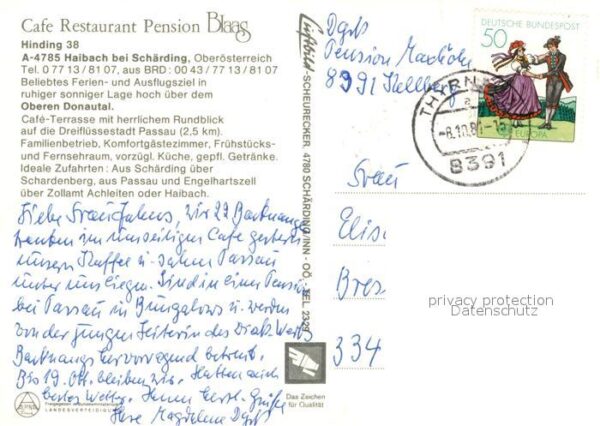 Cafe Restaurant Pension Blaas
Hinding 38
A-4785 Haibach bei Schärding, Oberösterreich
Tel. 0 77 13 / 81 07, aus BRD : 00 43 / 77 13 / 81 07
Beliebtes Ferien- und Ausflugsziel in
ruhiger sonniger Lage hoch über dem
Oberen Donautal.
Café-Terrasse mit herrlichem Rundblick
auf die Dreiflüssestadt Passau (2,5 km).
Familienbetrieb, Komfortgästezimmer, Frühstücks-
und Fernsehraum, vorzügl. Küche, gepfl. Getränke.
Ideale Zufahrten : Aus Schärding über
Schardenberg, aus Passau und Engelhartszell
über Zollamt Achleiten oder Haibach.
Liebe Frau, wir 22 Backnanger
im umseitigen Cafe
unsern Kaffee u. sahen Passau
unter uns liegen. Sind in einer Pension
bei Passau in Bungalows u. werden
von der jungen Leiterin des Diak. Werks
Backnang hervorragend betreut.
Bis 19. Okt. bleiben wir. Hatten auch
bestes Wetter. Ihnen herzl. Grüße
Ihre Magdalene
LANDESVERTEIDIGUNG
Luftbild SCHEURECKER, 4780 SCHÄRDING/INN - OÖ. TEL. 2329
Das Zeichen
für Qualität
Pension
8391
DEUTSCHE BUNDESPOST
50
EUROPA
THYRN
a
-8.10.81-
8391
Frau
Elis
Bres
334
privacy protection
Datenschutz